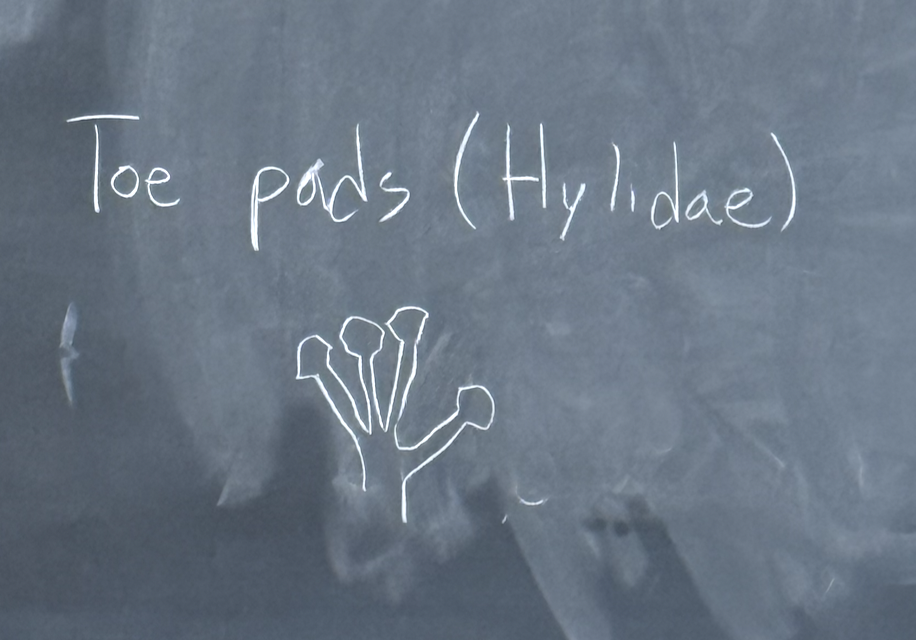 Toe pads (Hylidae)